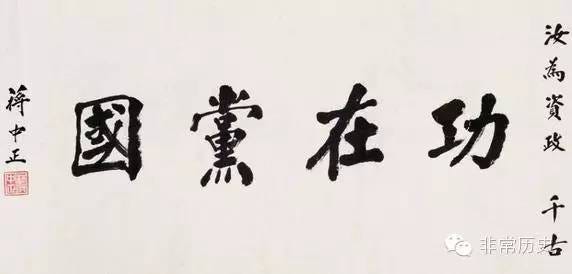 汝為資政 千古
功在黨國
蔣中正
非常历史